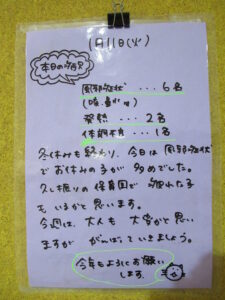 1月11日(火)
本日の病児
風邪症状・・・6名
(咳、鼻水)
発熱・・・2名
体調不良・・・1名
冬休みも終わり、今日は風邪症状
でお休みの子が多めでした。
久し振りの保育園で疲れた子
も、いるかと思います。
今週は、大人も大変かと思い
ますが がんばっていきましょう。
今年もよろしくお願い
します。